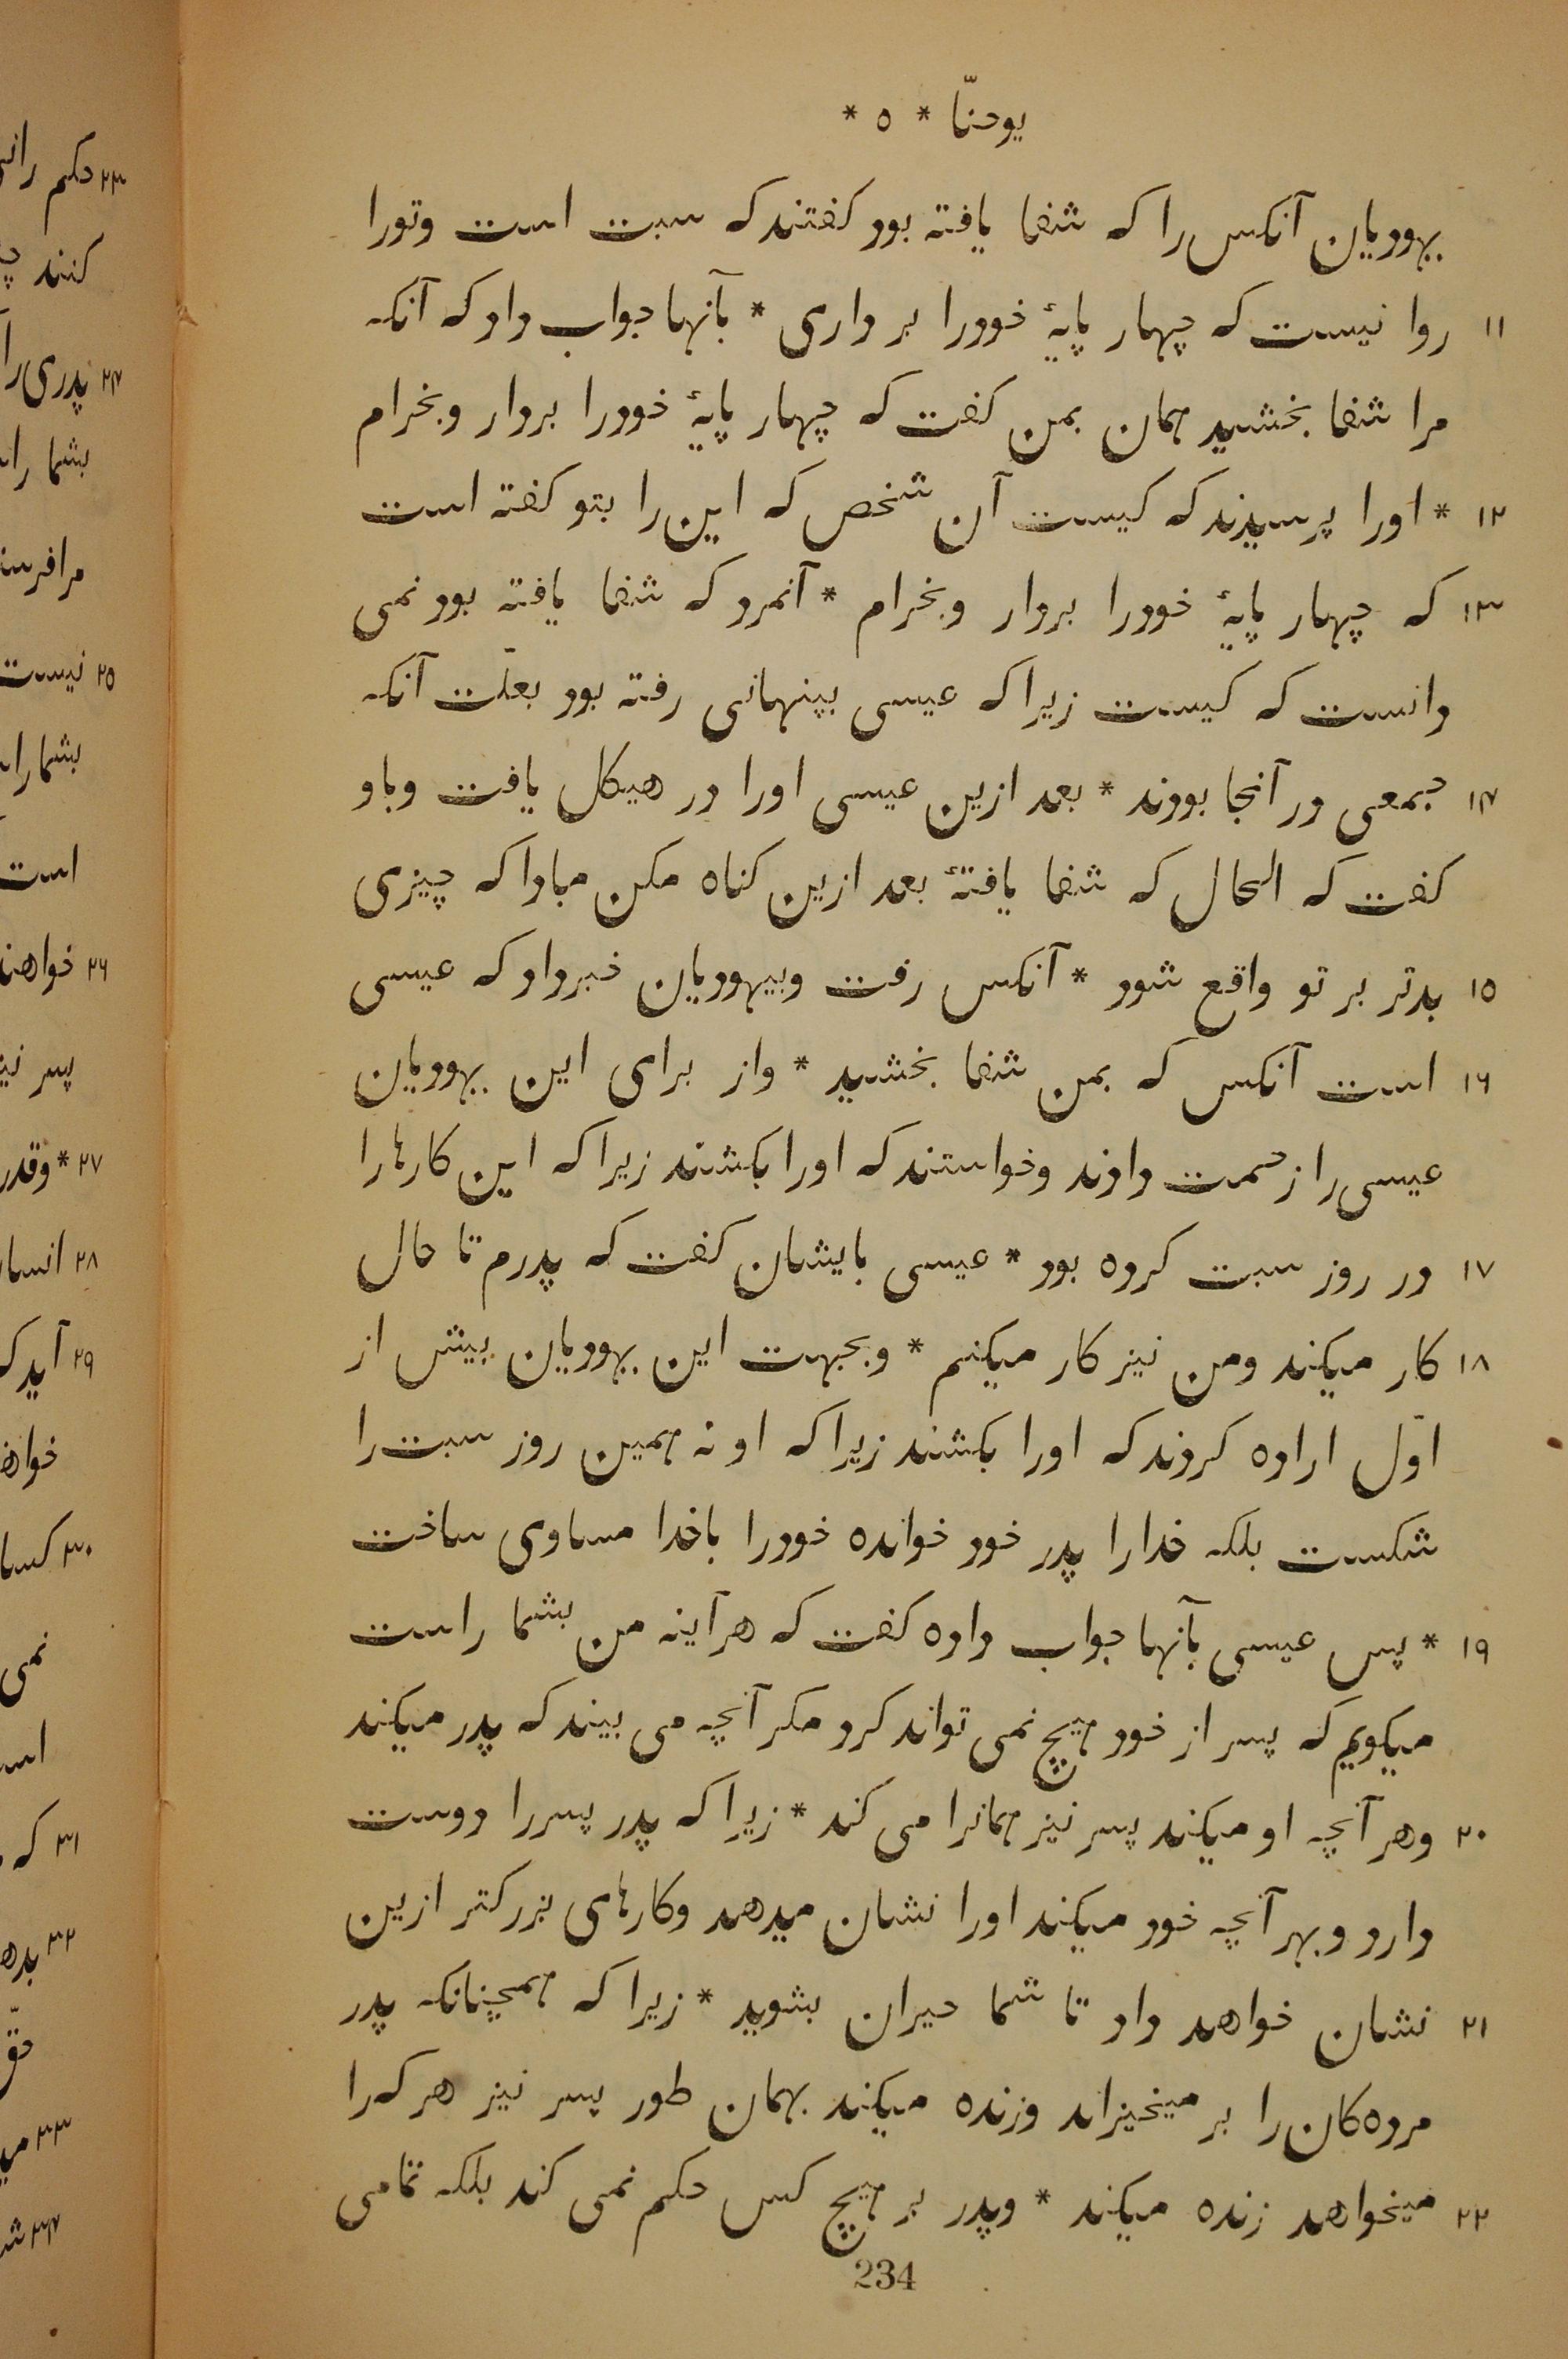 یوحنّا * ۵ *
یهودیان آنکس را که شفا یافته بود کفتند که سبت است وتورا
۱۱ روا نیست که چهار پایهٔ خودرا بر داری * بآنها جواب داد که آنکه
مرا شفا بخشید همان بمن کفت که چهار پایهٔ خودرا بردار وبخرام
۱۲ * اورا پرسیدند که کیست آن شخص که این را بتو کفته است
۱۳ که چهار پایهٔ خودرا بردار وبخرام * آنمرد که شفا یافته بود نمی
دانست که کیست زیرا که عیسی بپنهانی رفته بود بعلّت آنکه
۱۴ جمعی در آنجا بودند * بعد ازین عیسی اورا در هیکل یافت وباو
کفت که الحال که شفا یافتهٔ بعد ازین کناه مکن مبادا که چیزی
۱۵ بدتر بر تو واقع شود * آنکس رفت وبیهودیان خبرداد که عیسی
۱۶ است آنکس که بمن شفا بخشید * واز برای این یهودیان
عیسی را زحمت دادند وخواستند که اورا بکشند زیرا که این کارها را
۱۷ در روز سبت کرده بود * عیسی بایشان کفت که پدرم تا حال
۱۸ کار میکند ومن نیز کار میکنم * وبجهت این یهودیان بیش از
اوّل اراده کردند که اورا بکشند زیرا که او نه همین روز سبت را
شکست بلکه خدارا پدر خود خوانده خودرا باخدا مساوی ساخت
۱۹ * پس عیسی بآنها جواب داده کفت که هرآینه من بشما راست
میکویم که پسر از خود هیچ نمی تواند کرد مکر آنچه می بیند که پدر میکند
۲۰ وهر آنچه او میکند پسر نیز همانرا می کند * زیرا که پدر پسررا دوست
دارد وبهر آنچه خود میکند اورا نشان میدهد وکارهای بزرکتر ازین
۲۱ نشان خواهد داد تا شما حیران بشوید * زیرا که همچنانکه پدر
مرده‌کان را بر میخیزاند وزنده میکند بهمان طور پسر نیز هر که را
۲۲ میخواهد زنده میکند * وپدر بر هیچ کس حکم نمی کند بلکه تمامی
234
۲۳ حکم
کنند
۲۴ پدری را
بشما
۲۵ نیست
بشما
است
۲۶
پسر
۲۷ * وقدر
۲۸
۲۹ آید
۳۰
نمی
۳۱ که
۳۲
حقّ
۳۳
۳۴